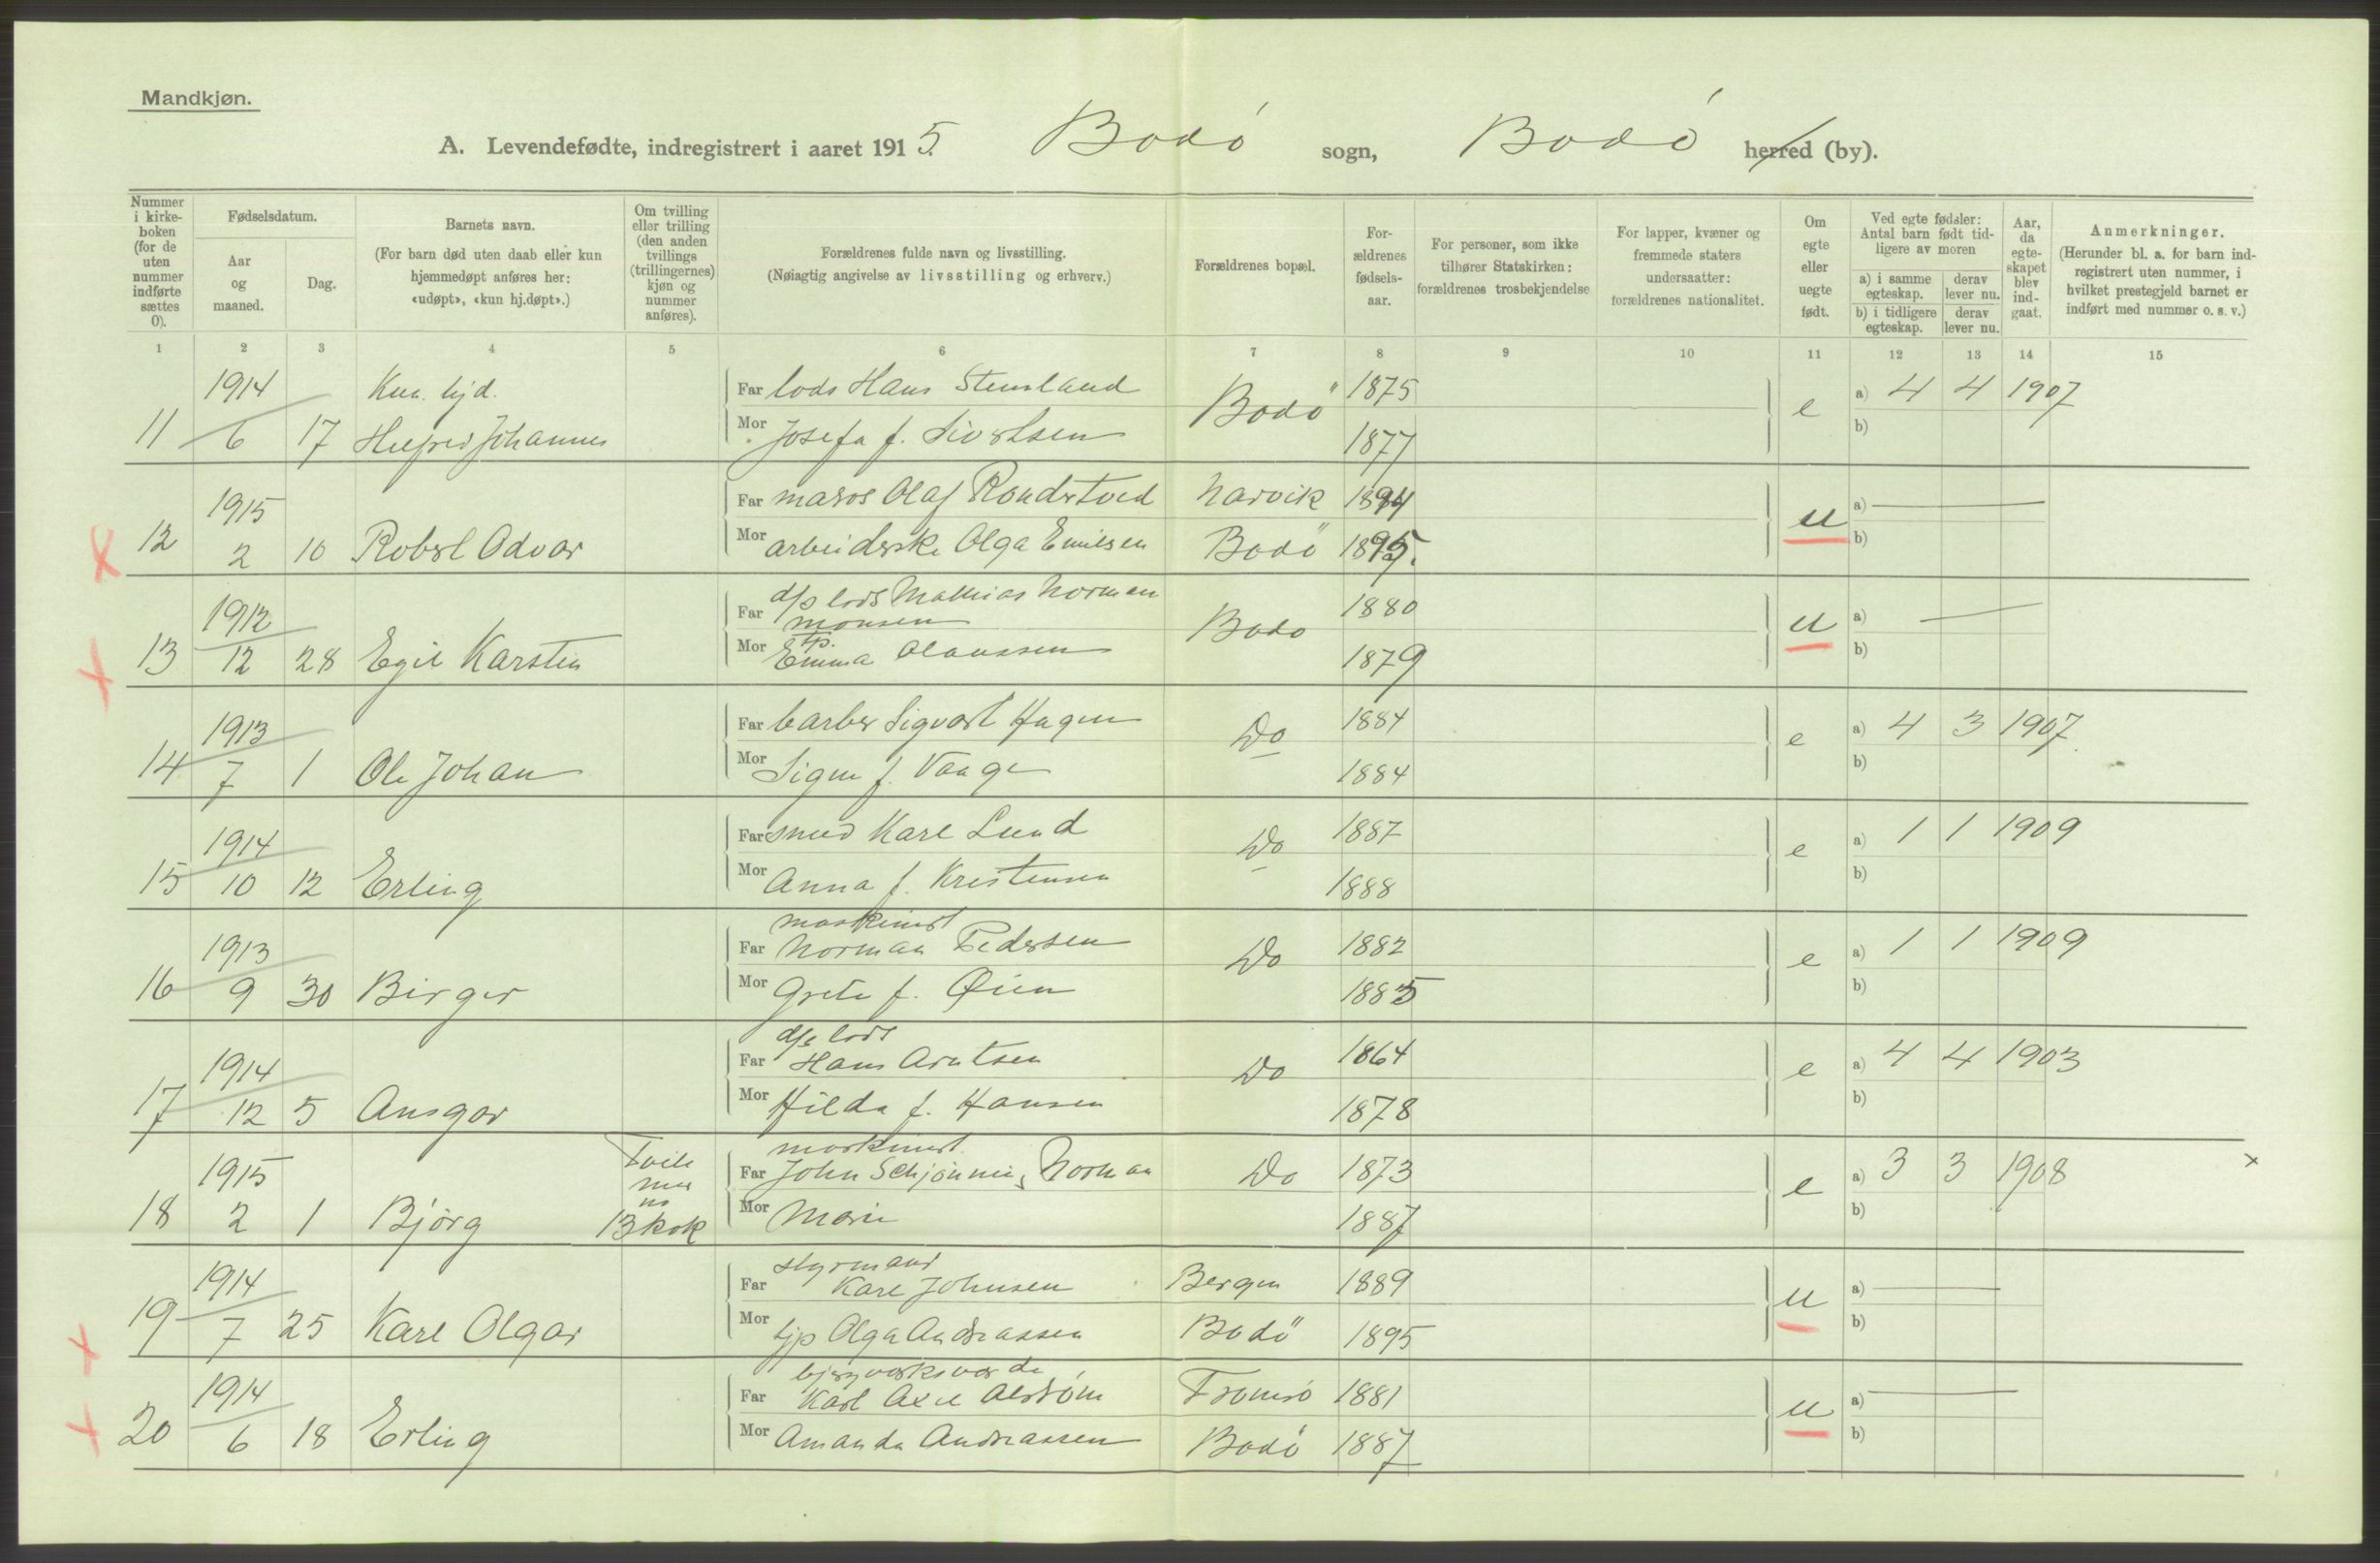 Mandkjøn.
A. Levendefødte, indregistrert i aaret 1915. Bodö sogn, Bodö herred (by).
Nummer i kirke-boken (for de uten nummer indførte sættes 0).
Fødselsdatum.
Aar og maaned.
Dag.
Barnets navn.
(For barn død uten daab eller kun hjemmedøpt anføres her: «udøpt», «kun hj.døpt».)
Om tvilling eller trilling (den anden tvillings (trillingernes) kjøn og nummer anføres).
Forældrenes fulde navn og livsstilling.
(Nøiagtig angivelse av livsstilling og erhverv.)
Forældrenes bopæl.
For-ældrenes fødsels-aar.
For personer, som ikke tilhører Statskirken: forældrenes trosbekjendelse
For lapper, kvæner og fremmede staters undersaatter: forældrenes nationalitet.
Om egte eller uegte født.
Ved egte fødsler: Antal barn født tid-ligere av moren
a) i samme egteskap.
derav lever nu.
b) i tidligere egteskap.
derav lever nu.
Aar, da egte-skapet blev ind-gaat.
Anmerkninger.
(Herunder bl. a. for barn ind-registrert uten nummer, i hvilket prestegjeld barnet er indført med nummer o. s. v.)
1 2 3 4 5 6 7 8 9 10 11 12 13 14 15
1914 Kun. hjd. Far lods Hans Stensland Bodö 1875 e a) 4 4 1907
11 6 17 Johannes Mor Josefa f. Sivertsen 1877 b)
1915 Far Olaf Narvik 1894 u a)
12 2 10 Robert Odvar Mor arbeiderske Olga Emilsen Bodö 1895. b)
1912 Far d/s lods Mathias Norman Monsen Bodö 1880 u a)
13 12 28 Egil Karsten Mor tp. Emma Olaussen 1879 b)
1913 Far barber Sigvart Hagen Do 1884 e a) 4 3 1907
14 7 1 Ole Johan Mor Signe f. Vaage 1884 b)
1914 Far smed Karl Lund Do 1887 e a) 1 1 1909
15 10 12 Erling Mor Anna f. Kristensen 1888 b)
1913 Far maskinist Norman Pedersen Do 1882 e a) 1 1 1909
16 9 30 Birger Mor Grete f. Øien 1885 b)
1914 Far d/s lods Hans Arntsen Do 1864 e a) 4 4 1903
17 12 5 Ansgar Mor Hilda f. Hansen 1878 b)
1915 Far maskinist John Schjönning Norman Do 1873 e a) 3 3 1908 x
18 2 1 Björg no 13 kvk Mor Marie 1887 b)
1914 Far styrmand Karl Johnsen Bergen 1889 u a)
19 7 25 Karl Olgar Mor tjp Olga Andreassen Bodö 1895 b)
1914 Far Karl Axel Tromsö 1881 u a)
20 6 18 Erling Mor Amanda Andreassen Bodö 1887 b)